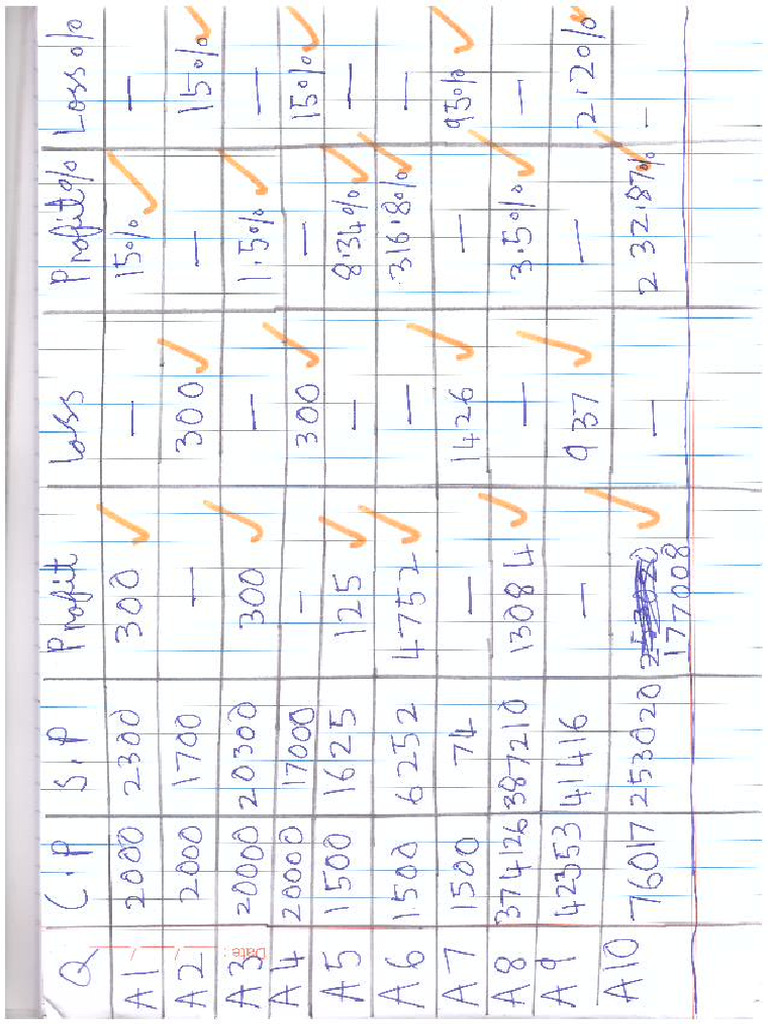 Q C.P S.P Profit Loss Profit% Loss%
A1 2000 2300 300 — 15% —
A2 2000 1700 — 300 — 15%
Date:
A3 20000 20300 300 — 1.5% —
A4 20000 17000 — 300 — 15%
A5 1500 1625 125 — 8.34% —
A6 1500 6252 4752 — 316.8% —
A7 1500 74 — 1426 — 95%
A8 374126 387210 13084 — 3.5% —
A9 42353 41416 — 937 — 2.20%
A10 76017 253020 — 232.87% —
177008